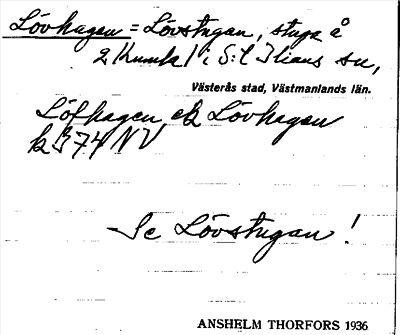 Lövhagen = Lövstugan, stuga å
2 Kumla 1 i S:t Ilians sn,
Västerås stad, Västmanlands län.
Löfhagen ek Lövhagen
k 374 NV
Se Lövstugan!
ANSHELM THORFORS 1936